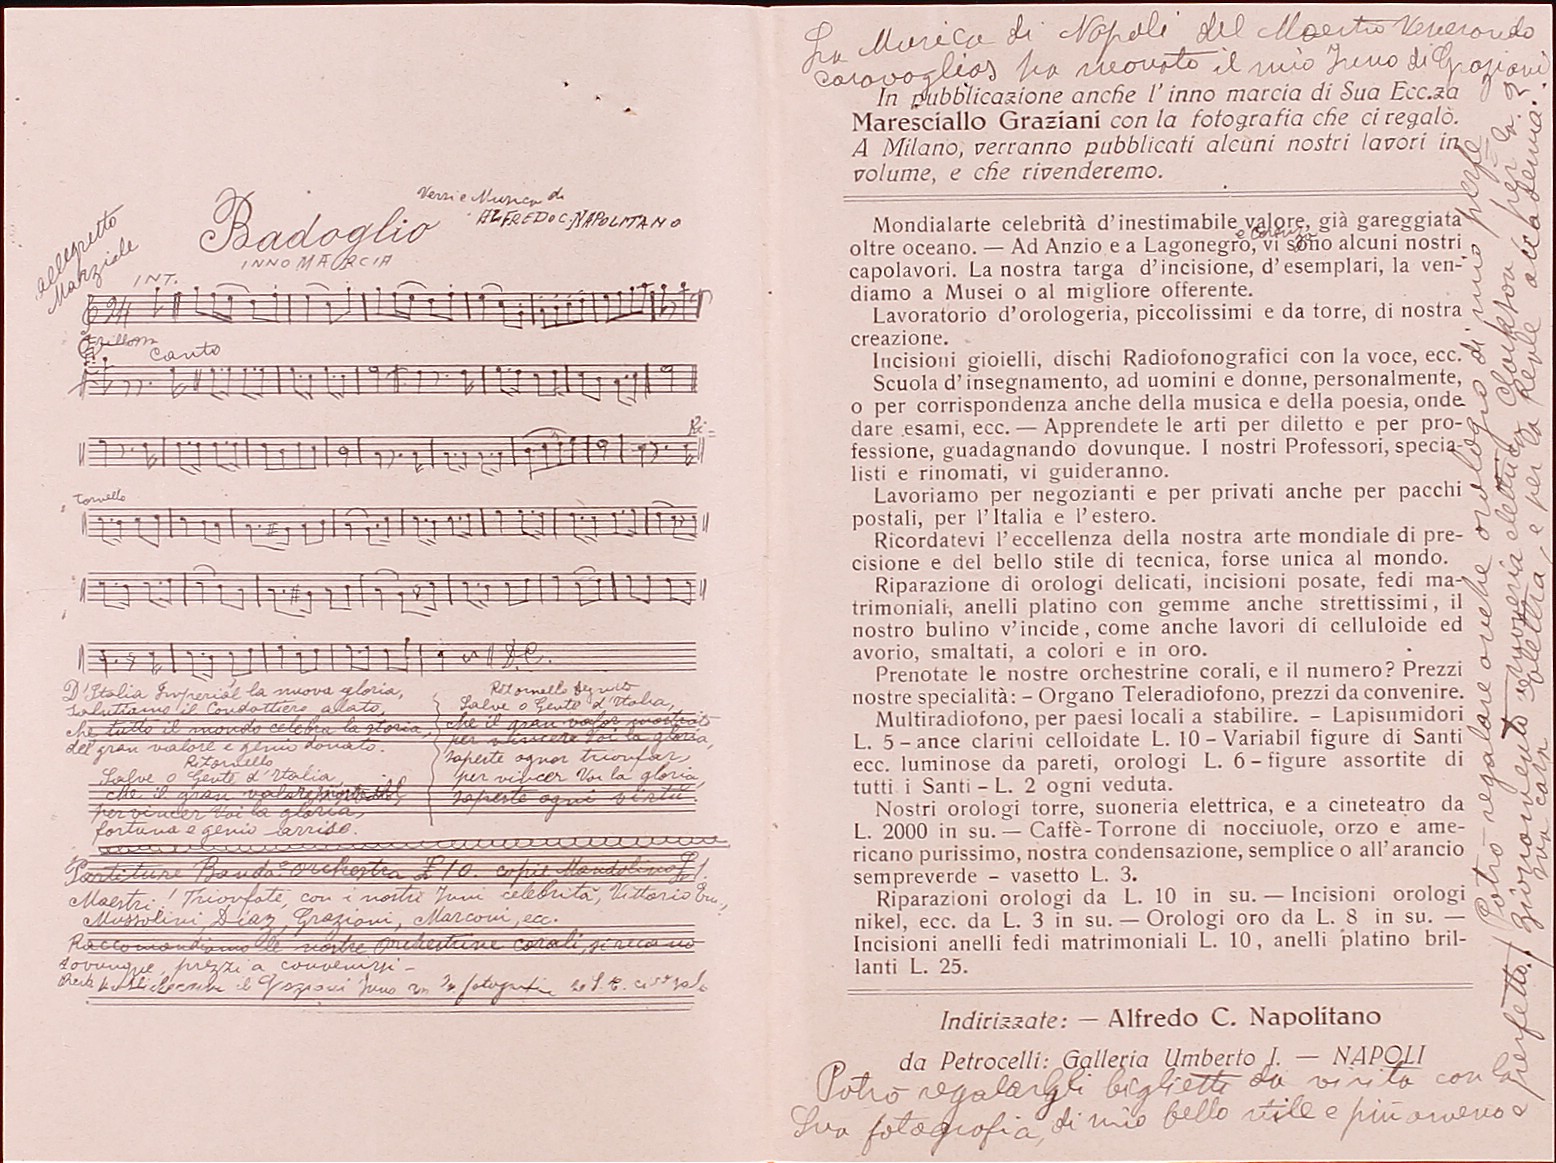 Badoglio
Versi e Musica di
ALFREDO C. NAPOLITANO
INNO MARCIA
allegretto
Marziale
INT.
Canto
Ri=
tornello
D'Italia Imperial la nuova gloria,
salutiamo il Condottiero alato,
che tutto il mondo celebra la storia,
del gran valore e genio donato.
Ritornello
Salve o Gente d'Italia,
che il gran valore
per vincer Voi la gloria,
fortuna e genio arriso.
Ritornello Seguito
Salve o Gente d'Italia,
che il gran valor mostrato
per vincere Voi la gloria,
sapeste ognor trionfar,
per vincer Voi la gloria,
sapeste ogni virtù.
Partiture Banda e orchestra £ 10. copie Mandolino £ 1.
Maestri! Trionfate, con i nostri Inni celebrità, Vittorio Em.,
Mussolini, Diaz, Graziani, Marconi, ecc.
Raccomandiamo le nostre orchestrine corali, si recano
dovunque, prezzi a convenirsi -
La Musica di Napoli del Maestro Venerando
caravaglios ha il mio Inno di Graziani
In pubblicazione anche l'inno marcia di Sua Ecc.za
Maresciallo Graziani con la fotografia che ci regalò.
A Milano, verranno pubblicati alcuni nostri lavori in
volume, e che rivenderemo.
Mondialarte celebrità d'inestimabile valore, già gareggiata
oltre oceano. — Ad Anzio e a Lagonegro, vi sono alcuni nostri
capolavori. La nostra targa d'incisione, d'esemplari, la ven-
diamo a Musei o al migliore offerente.
Lavoratorio d'orologeria, piccolissimi e da torre, di nostra
creazione.
Incisioni gioielli, dischi Radiofonografici con la voce, ecc.
Scuola d'insegnamento, ad uomini e donne, personalmente,
o per corrispondenza anche della musica e della poesia, onde
dare esami, ecc. — Apprendete le arti per diletto e per pro-
fessione, guadagnando dovunque. I nostri Professori, specia-
listi e rinomati, vi guideranno.
Lavoriamo per negozianti e per privati anche per pacchi
postali, per l'Italia e l'estero.
Ricordatevi l'eccellenza della nostra arte mondiale di pre-
cisione e del bello stile di tecnica, forse unica al mondo.
Riparazione di orologi delicati, incisioni posate, fedi ma-
trimoniali, anelli platino con gemme anche strettissimi, il
nostro bulino v'incide, come anche lavori di celluloide ed
avorio, smaltati, a colori e in oro.
Prenotate le nostre orchestrine corali, e il numero? Prezzi
nostre specialità: - Organo Teleradiofono, prezzi da convenire.
Multiradiofono, per paesi locali a stabilire. - Lapisumidori
L. 5 - ance clarini celloidate L. 10 - Variabil figure di Santi
ecc. luminose da pareti, orologi L. 6 - figure assortite di
tutti i Santi - L. 2 ogni veduta.
Nostri orologi torre, suoneria elettrica, e a cineteatro da
L. 2000 in su. — Caffè-Torrone di nocciuole, orzo e ame-
ricano purissimo, nostra condensazione, semplice o all'arancio
sempreverde - vasetto L. 3.
Riparazioni orologi da L. 10 in su. — Incisioni orologi
nikel, ecc. da L. 3 in su. — Orologi oro da L. 8 in su. —
Incisioni anelli fedi matrimoniali L. 10, anelli platino bril-
lanti L. 25.
Indirizzate: — Alfredo C. Napolitano
da Petrocelli: Galleria Umberto I. — NAPOLI
Potrò regalargli biglietti da visita con la
Sua fotografia, di mio bello stile e più ameno e
perfetto.
Potrò regalare anche orologio di mio
e per la Reale accademia.
sua casa